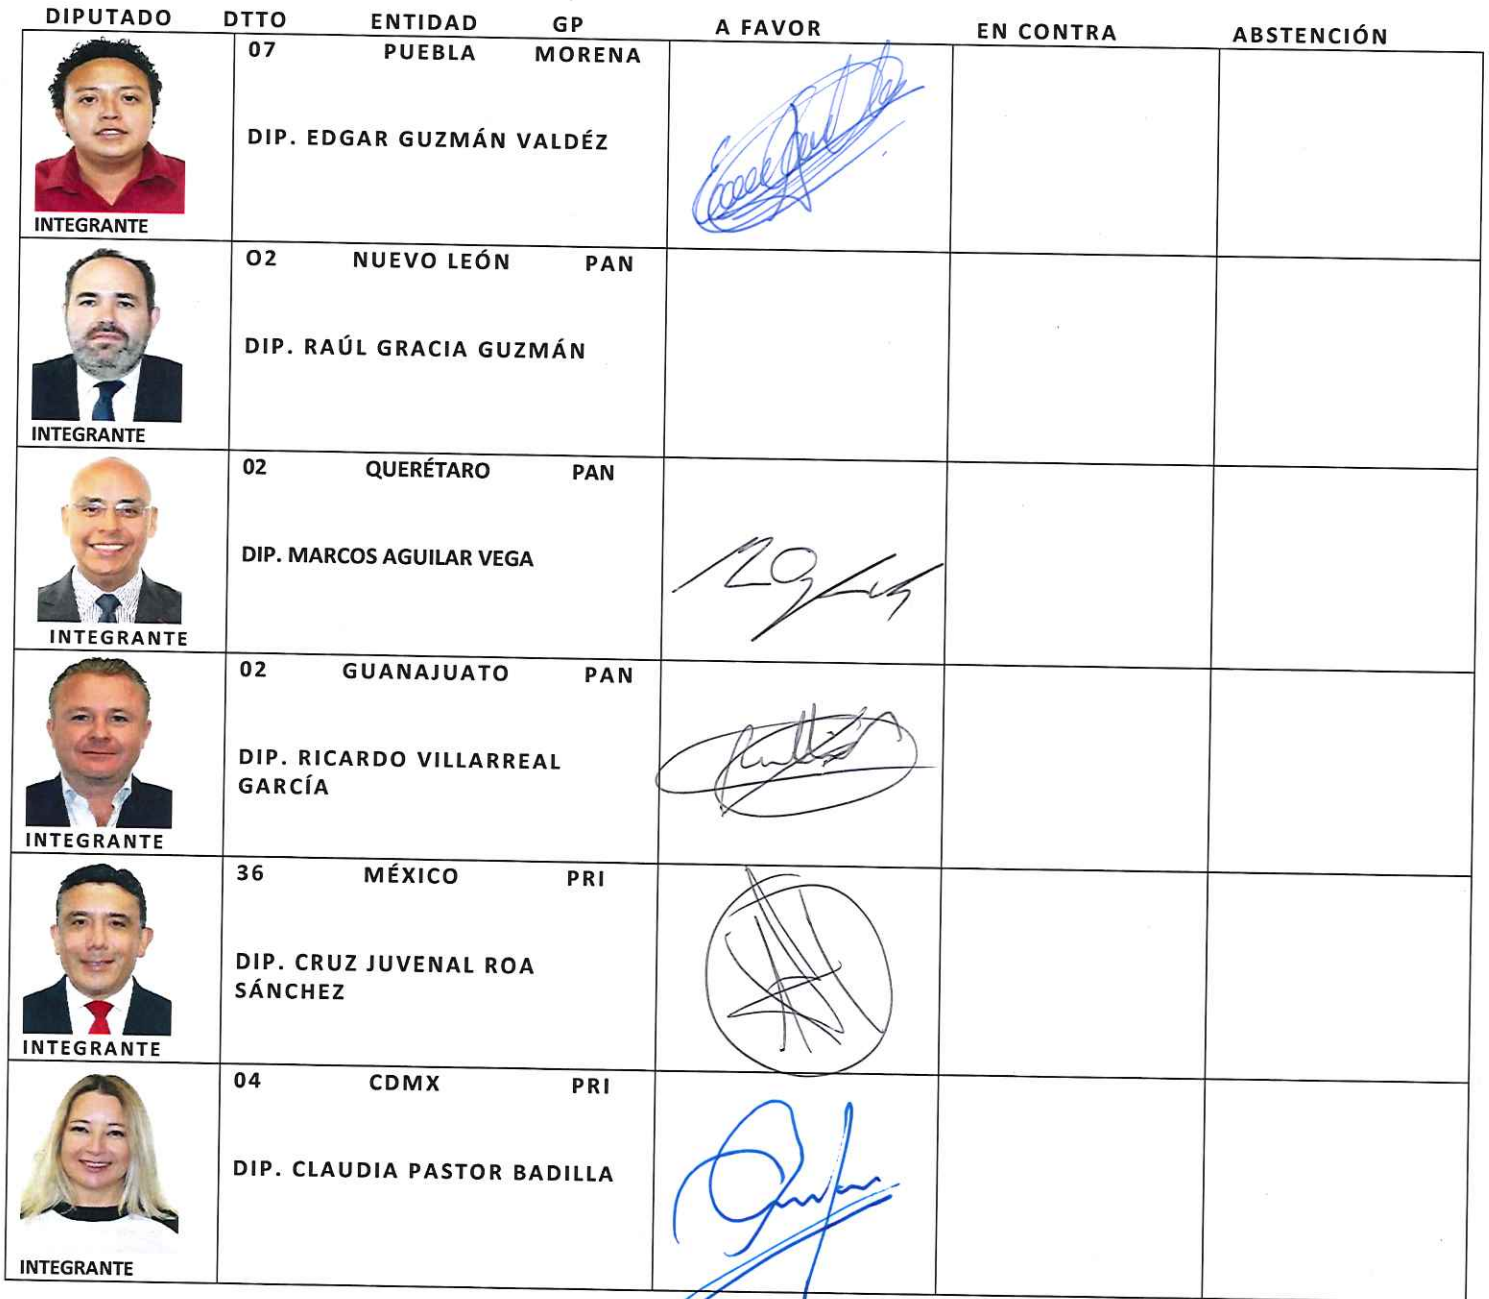 DIPUTADO DTTO ENTIDAD GP A FAVOR EN CONTRA ABSTENCIÓN
07 PUEBLA MORENA
DIP. EDGAR GUZMÁN VALDÉZ
INTEGRANTE
O2 NUEVO LEÓN PAN
DIP. RAÚL GRACIA GUZMÁN
INTEGRANTE
02 QUERÉTARO PAN
DIP. MARCOS AGUILAR VEGA
INTEGRANTE
02 GUANAJUATO PAN
DIP. RICARDO VILLARREAL
GARCÍA
INTEGRANTE
36 MÉXICO PRI
DIP. CRUZ JUVENAL ROA
SÁNCHEZ
INTEGRANTE
04 CDMX PRI
DIP. CLAUDIA PASTOR BADILLA
INTEGRANTE